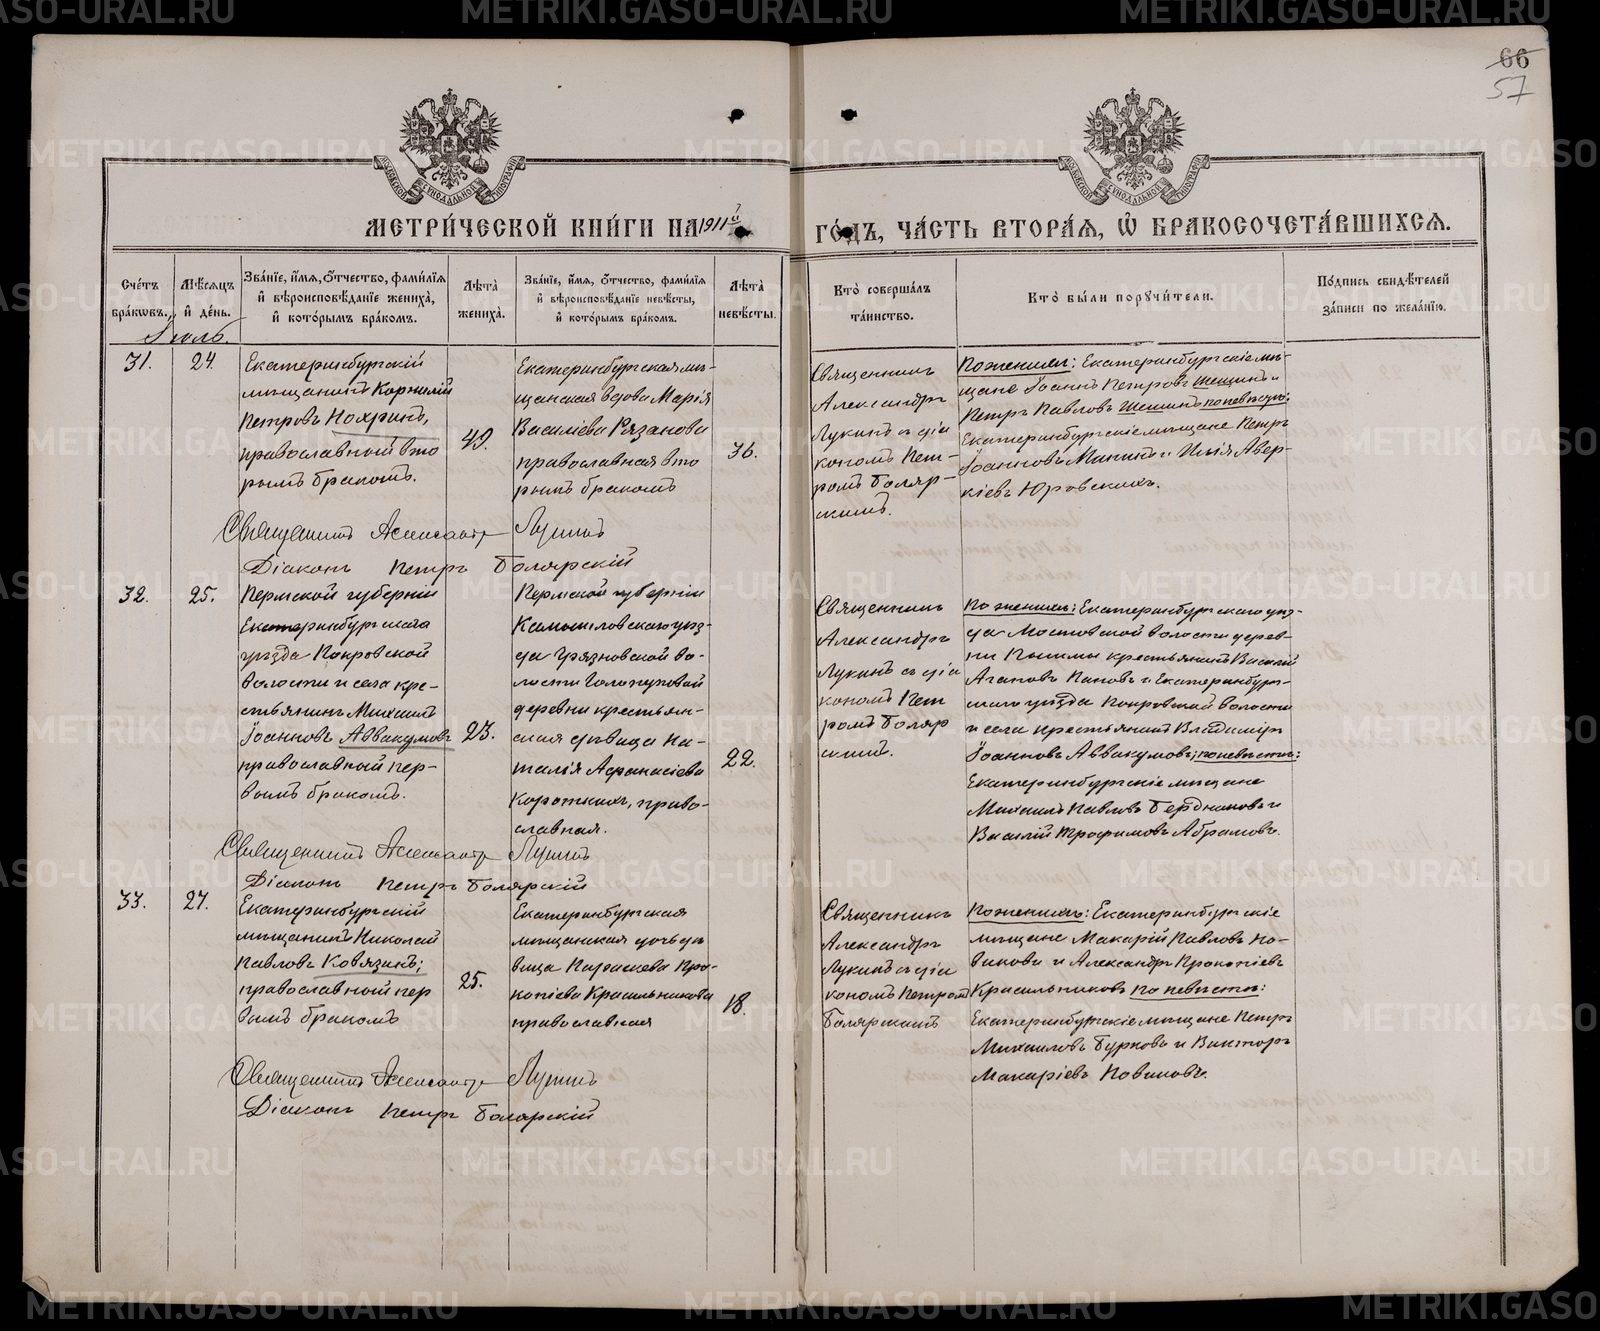 66
57
МЕТРИ́ЧЕСКОЙ КНИ́ГИ НА 1911 й ГО́ДЪ, ЧА́СТЬ ВТОРА́Я, Ѡ БРАКОСОЧЕТА́ВШИХСЯ.
Сче́тъ бра́кѡвъ.
Мѣ́сяцъ и де́нь.
Зва́ніе, и́мя, ѻ́тчество, фами́лія и вѣроисповѣ́даніе жениха̀, и кото́рымъ бра́комъ.
Лѣта̀ жениха̀.
Зва́ніе, и́мя, ѻ́тчество, фами́лія и вѣроисповѣ́даніе невѣ́сты, и кото́рымъ бра́комъ.
Лѣта̀ невѣ́сты.
Кто̀ соверша́лъ та́инство.
Кто̀ бы́ли порꙋчи́тели.
По́дпись свидѣ́телей за́писи по жела́нію.
Іюль.
31.
24.
Екатеринбургскій
мѣщанинъ Корнилій
Петровъ Нохринъ,
православный вто
рымъ бракомъ.
49.
Екатеринбургская мѣ-
щанская вдова Марія
Василіева Рязанова
православная вто
рымъ бракомъ
36.
Священникъ
Александръ
Лукинъ съ діа
кономъ Пет-
ромъ Боляр-
скимъ.
По женихѣ: Екатеринбургскіе мѣ-
щане Іоаннъ Петровъ Шешинъ и
Петръ Павловъ Шешинъ по невѣстѣ:
Екатеринбургскіе мѣщане Петръ
Іоанновъ Микинъ и Илія Авер-
кіевъ Юровскихъ.
Священникъ Александръ Лукинъ
Діаконъ Петръ Болярскій
32.
25.
Пермской губерніи
Екатеринбургскаго
уѣзда Покровской
волости и села кре-
стьянинъ Михаилъ
Іоанновъ Аввакумовъ
православный пер-
вымъ бракомъ.
23.
Пермской губерніи
Камышловскаго уѣз-
да Грязновской во-
лости Голопуповой
деревни крестьян-
ская дѣвица На-
талія Афанасіева
Короткихъ, право-
славная.
22.
Священникъ
Александръ
Лукинъ съ діа
кономъ Пет
ромъ Боляр
скимъ.
По женихѣ: Екатеринбургскаго уѣз-
да Мостовской волости дерев-
ни крестьянинъ Василій
Агаповъ Пановъ и Екатеринбург-
скаго уѣзда Покровской волости
и села крестьянинъ Владиміръ
Іоанновъ Аввакумовъ; по невѣстѣ:
Екатеринбургскіе мѣщане
Михаилъ Павловъ Бердниковъ и
Василій Трофимовъ Абрамовъ.
Священникъ Александръ Лукинъ
Діаконъ Петръ Болярскій
33.
27.
Екатеринбургскій
мѣщанинъ Николай
Павловъ Ковязинъ;
православный пер
вымъ бракомъ
25.
Екатеринбургская
мѣщанская дочь дѣ
вица Параскева Про-
копіева Красильникова
православная
18.
Священникъ
Александръ
Лукинъ съ діа
кономъ Петромъ
Болярскимъ
По женихѣ: Екатеринбургскіе
мѣщане Макарій Павловъ Но-
виковъ и Александръ Прокопіевъ
Красильниковъ по невѣстѣ:
Екатеринбургскіе мѣщане Петръ
Михаиловъ Бурковъ и Викторъ
Макаріевъ Новиковъ.
Священникъ Александръ Лукинъ
Діаконъ Петръ Болярскій
METRIKI.GASO-URAL.RU